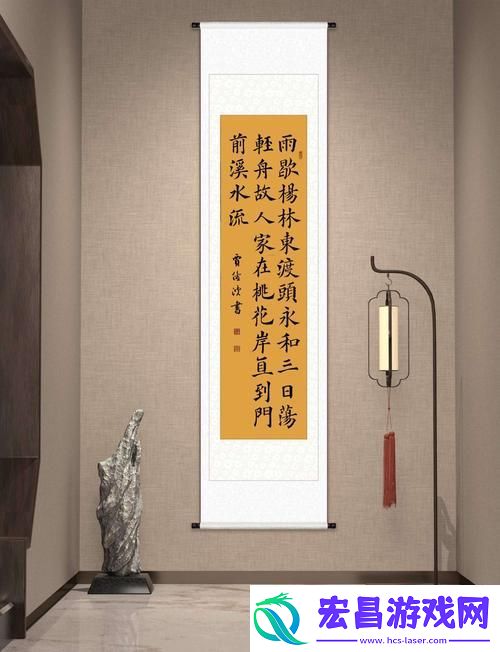 雨歇楊林東渡頭永和三日蕩
輕舟故人家在桃花岸直到門
前溪水流
書
宏昌游戏网
www.hcs-laser.com